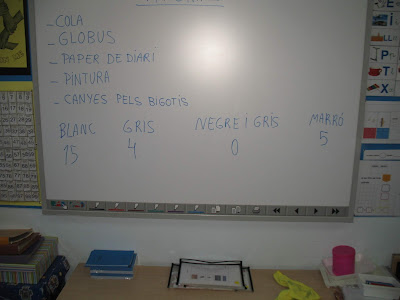 - COLA
- GLOBUS
- PAPER DE DIARI
- PINTURA
- CANYES PELS BIGOTIS
BLANC GRIS NEGRE I GRIS MARRÓ
15 4 0 5